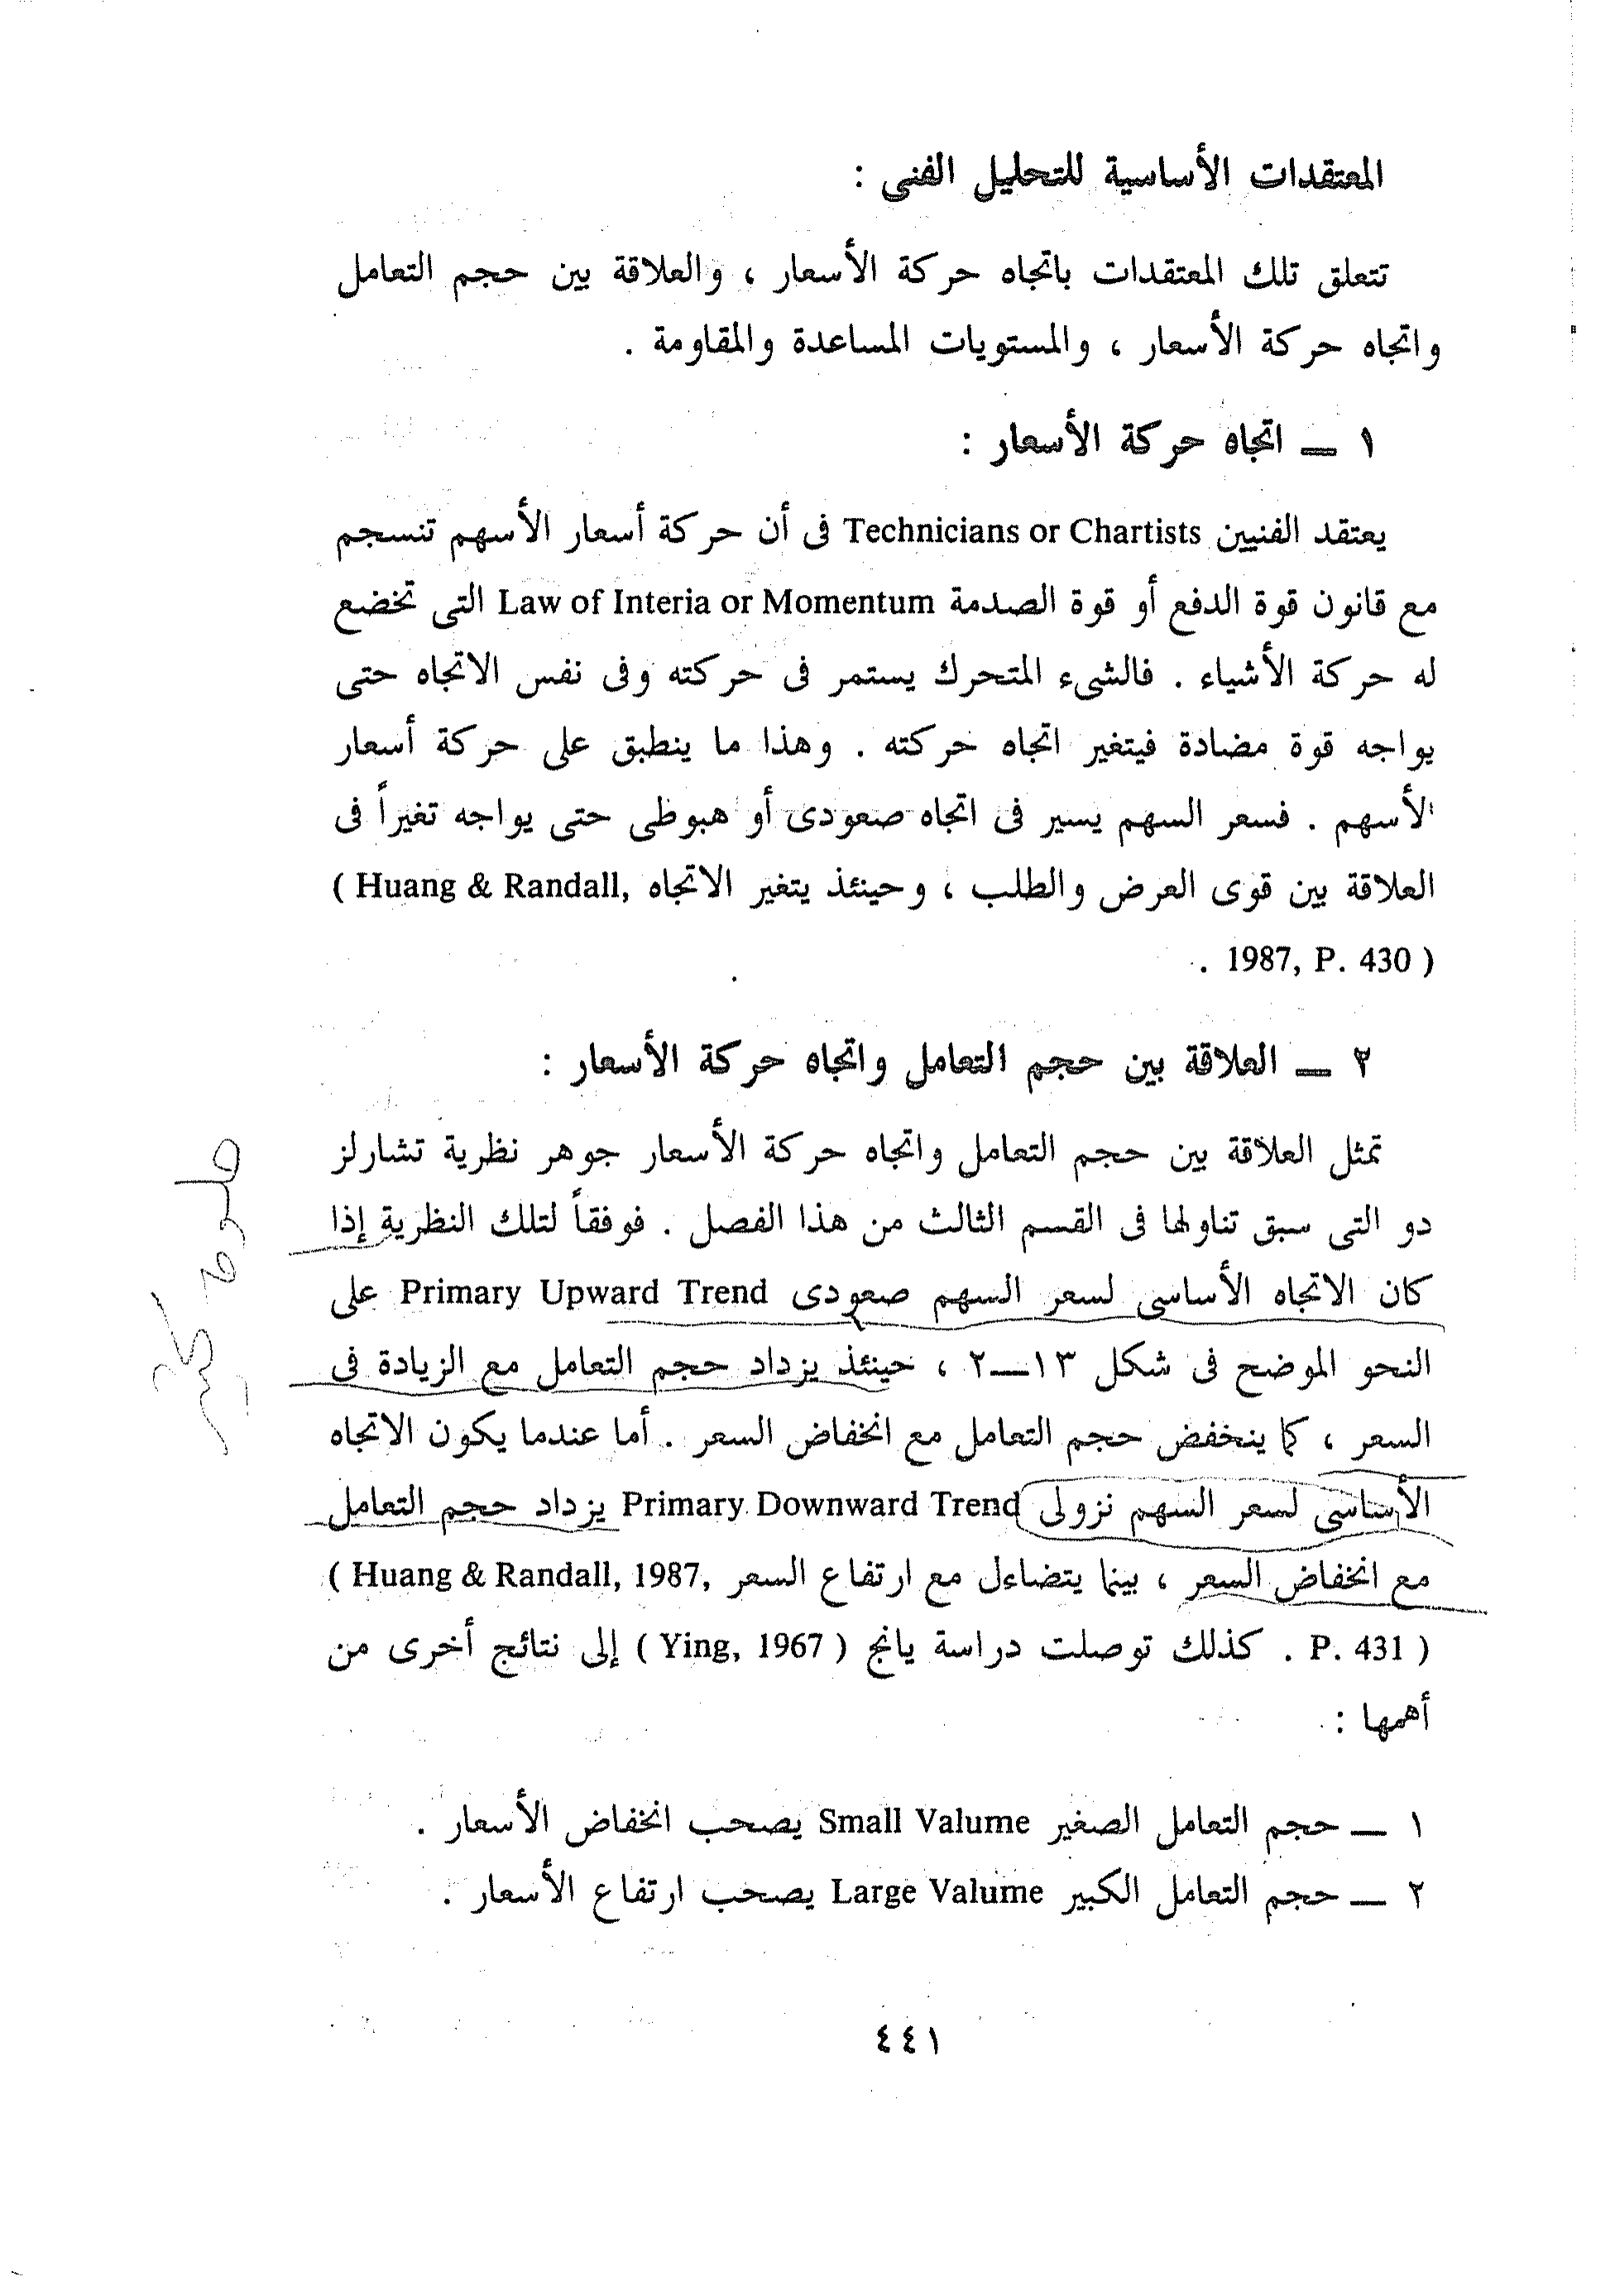 المعتقدات الأساسية للتحليل الفنى :
تتعلق تلك المعتقدات باتجاه حركة الأسعار ، والعلاقة بين حجم التعامل
واتجاه حركة الأسعار ، والمستويات المساعدة والمقاومة .
١ ــ اتجاه حركة الأسعار :
يعتقد الفنيين Technicians or Chartists فى أن حركة أسعار الأسهم تنسجم
مع قانون قوة الدفع أو قوة الصدمة Law of Interia or Momentum التى تخضع
له حركة الأشياء . فالشىء المتحرك يستمر فى حركته وفى نفس الاتجاه حتى
يواجه قوة مضادة فيتغير اتجاه حركته . وهذا ما ينطبق على حركة أسعار
الأسهم . فسعر السهم يسير فى اتجاه صعودى أو هبوطى حتى يواجه تغيراً فى
العلاقة بين قوى العرض والطلب ، وحينئذ يتغير الاتجاه ( Huang & Randall,
1987, P. 430 ) .
٢ ــ العلاقة بين حجم التعامل واتجاه حركة الأسعار :
تمثل العلاقة بين حجم التعامل واتجاه حركة الأسعار جوهر نظرية تشارلز
دو التى سبق تناولها فى القسم الثالث من هذا الفصل . فوفقاً لتلك النظرية إذا
كان الاتجاه الأساسى لسعر السهم صعودى Primary Upward Trend على
النحو الموضح فى شكل ١٣ــ٢ ، حينئذ يزداد حجم التعامل مع الزيادة فى
السعر ، كما ينخفض حجم التعامل مع انخفاض السعر . أما عندما يكون الاتجاه
الأساسى لسعر السهم نزولى Primary Downward Trend يزداد حجم التعامل
مع انخفاض السعر ، بينما يتضاءل مع ارتفاع السعر ( Huang & Randall, 1987,
P. 431 ) . كذلك توصلت دراسة يانج ( Ying, 1967 ) إلى نتائج أخرى من
أهمها :
١ ــ حجم التعامل الصغير Small Valume يصحب انخفاض الأسعار .
٢ ــ حجم التعامل الكبير Large Valume يصحب ارتفاع الأسعار .
٤٤١